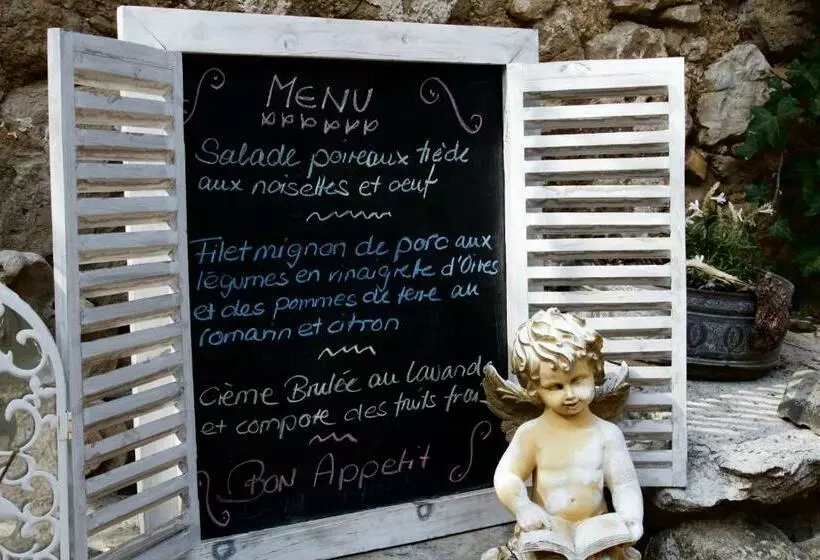 MENU
Salade poireaux tiède
aux noisettes et oeuf
Filet mignon de porc aux
légumes en vinaigrete d'Oires
et des pommes de terre au
romann et citron
Crème Brulée au lavande
et compote des fruits
Bon Appetit